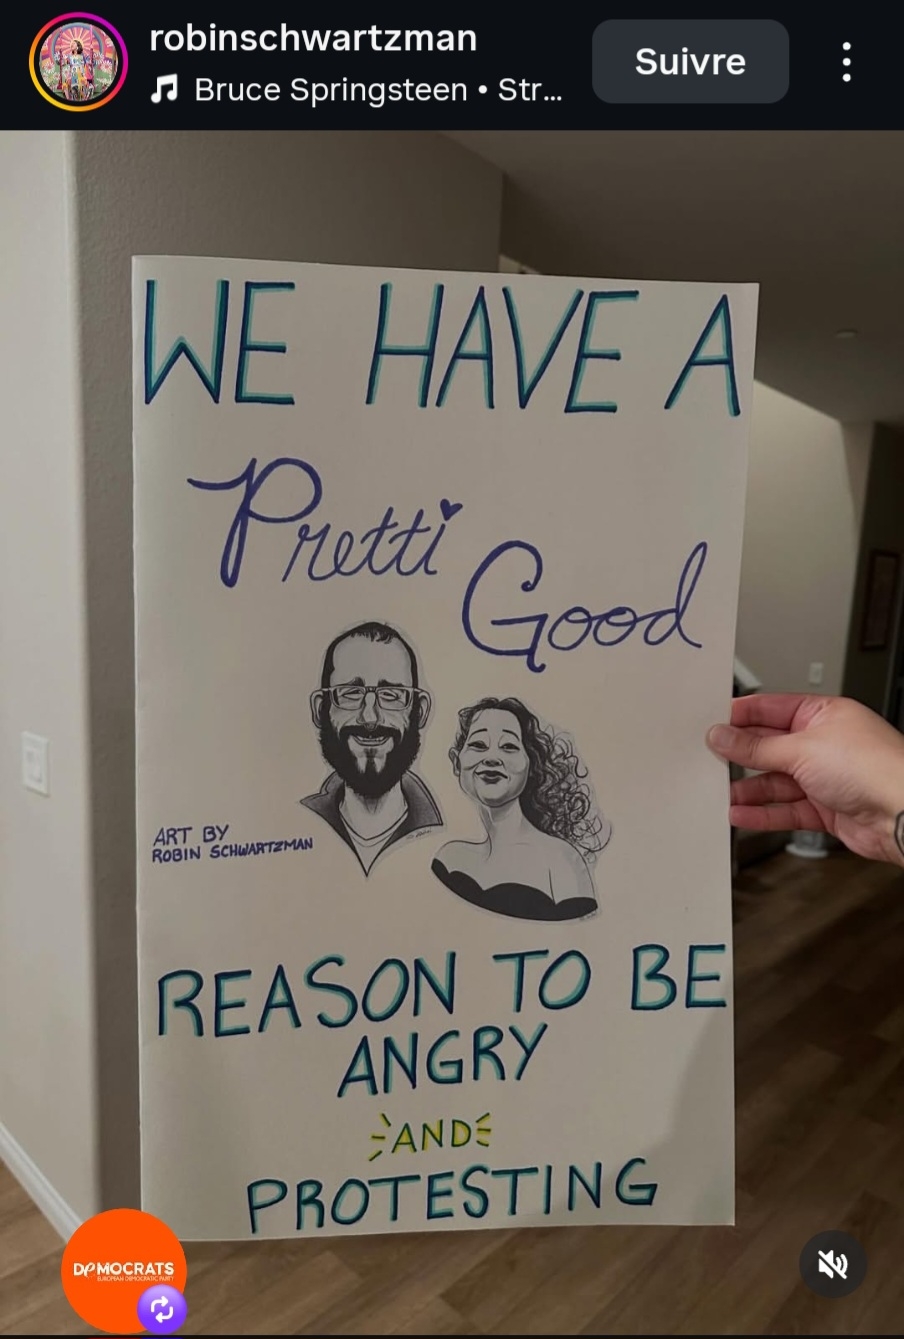 robinschwartzman
Bruce Springsteen • Str...
Suivre
WE HAVE A
Pretti
Good
ART BY
ROBIN SCHWARTZMAN
REASON TO BE
ANGRY
AND
PROTESTING
DEMOCRATS
EUROPEAN DEMOCRATIC PARTY